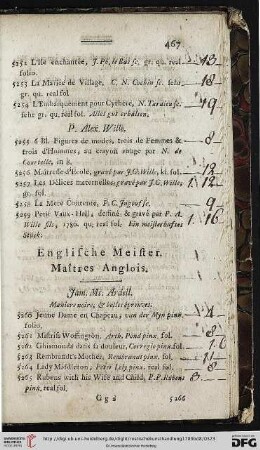 467
5252 L'Isle enchantée, J. Ph. le Bas sc. gr. qu. real - 13 -
folio.
5253 La Mariée de Village, C. N. Cochin sc. sehr - 18 -
gr. qu. real fol.
5254 L'Embarquement pour Cythere, N. Tardieu sc. - 19 -
sehr gr. qu. real fol. Alles gut erhalten.
P. Alex. Wille.
5255 6 Bl. Figures de modes, trois de Femmes & - 8 -
trois d'Hommes, au crayon rouge par N. de
Courteille, in 8.
5256 Maitresse d'Ecole, gravé par J. G. Wille, kl. fol. 12
5257 Les Délices maternelles gravé par J. G. Wille, 1. 12
gr. fol.
5258 La Mere Contente, P. C. Ingouf sc. - 9 -
5259 Petit Vaux-Hall, dessiné & gravé par P. A. 1. 16
Wille fils, 1780. qu. real fol. Ein meisterhaftes
Stück.
Englische Meister.
Maîtres Anglois.
Jam. Mc. Ardell.
5260 Jeune Dame en Chapeau, van der Myn pinx. - 4
folio.
5261 Mistriss Woffington, Arth. Pond pinx. fol. - 8 -
5262 Ghismonda dans sa douleur, Correggio pinx. fol.
5263 Rembrandt's Mother, Rembrandt pinx. fol. - 11 -
5264 Lady Middleton, Peter Lely pinx. fol. - 8
5265 Rubens with his Wife and Child, P. P. Rubens
pinx. real fol.
G g 2 5266